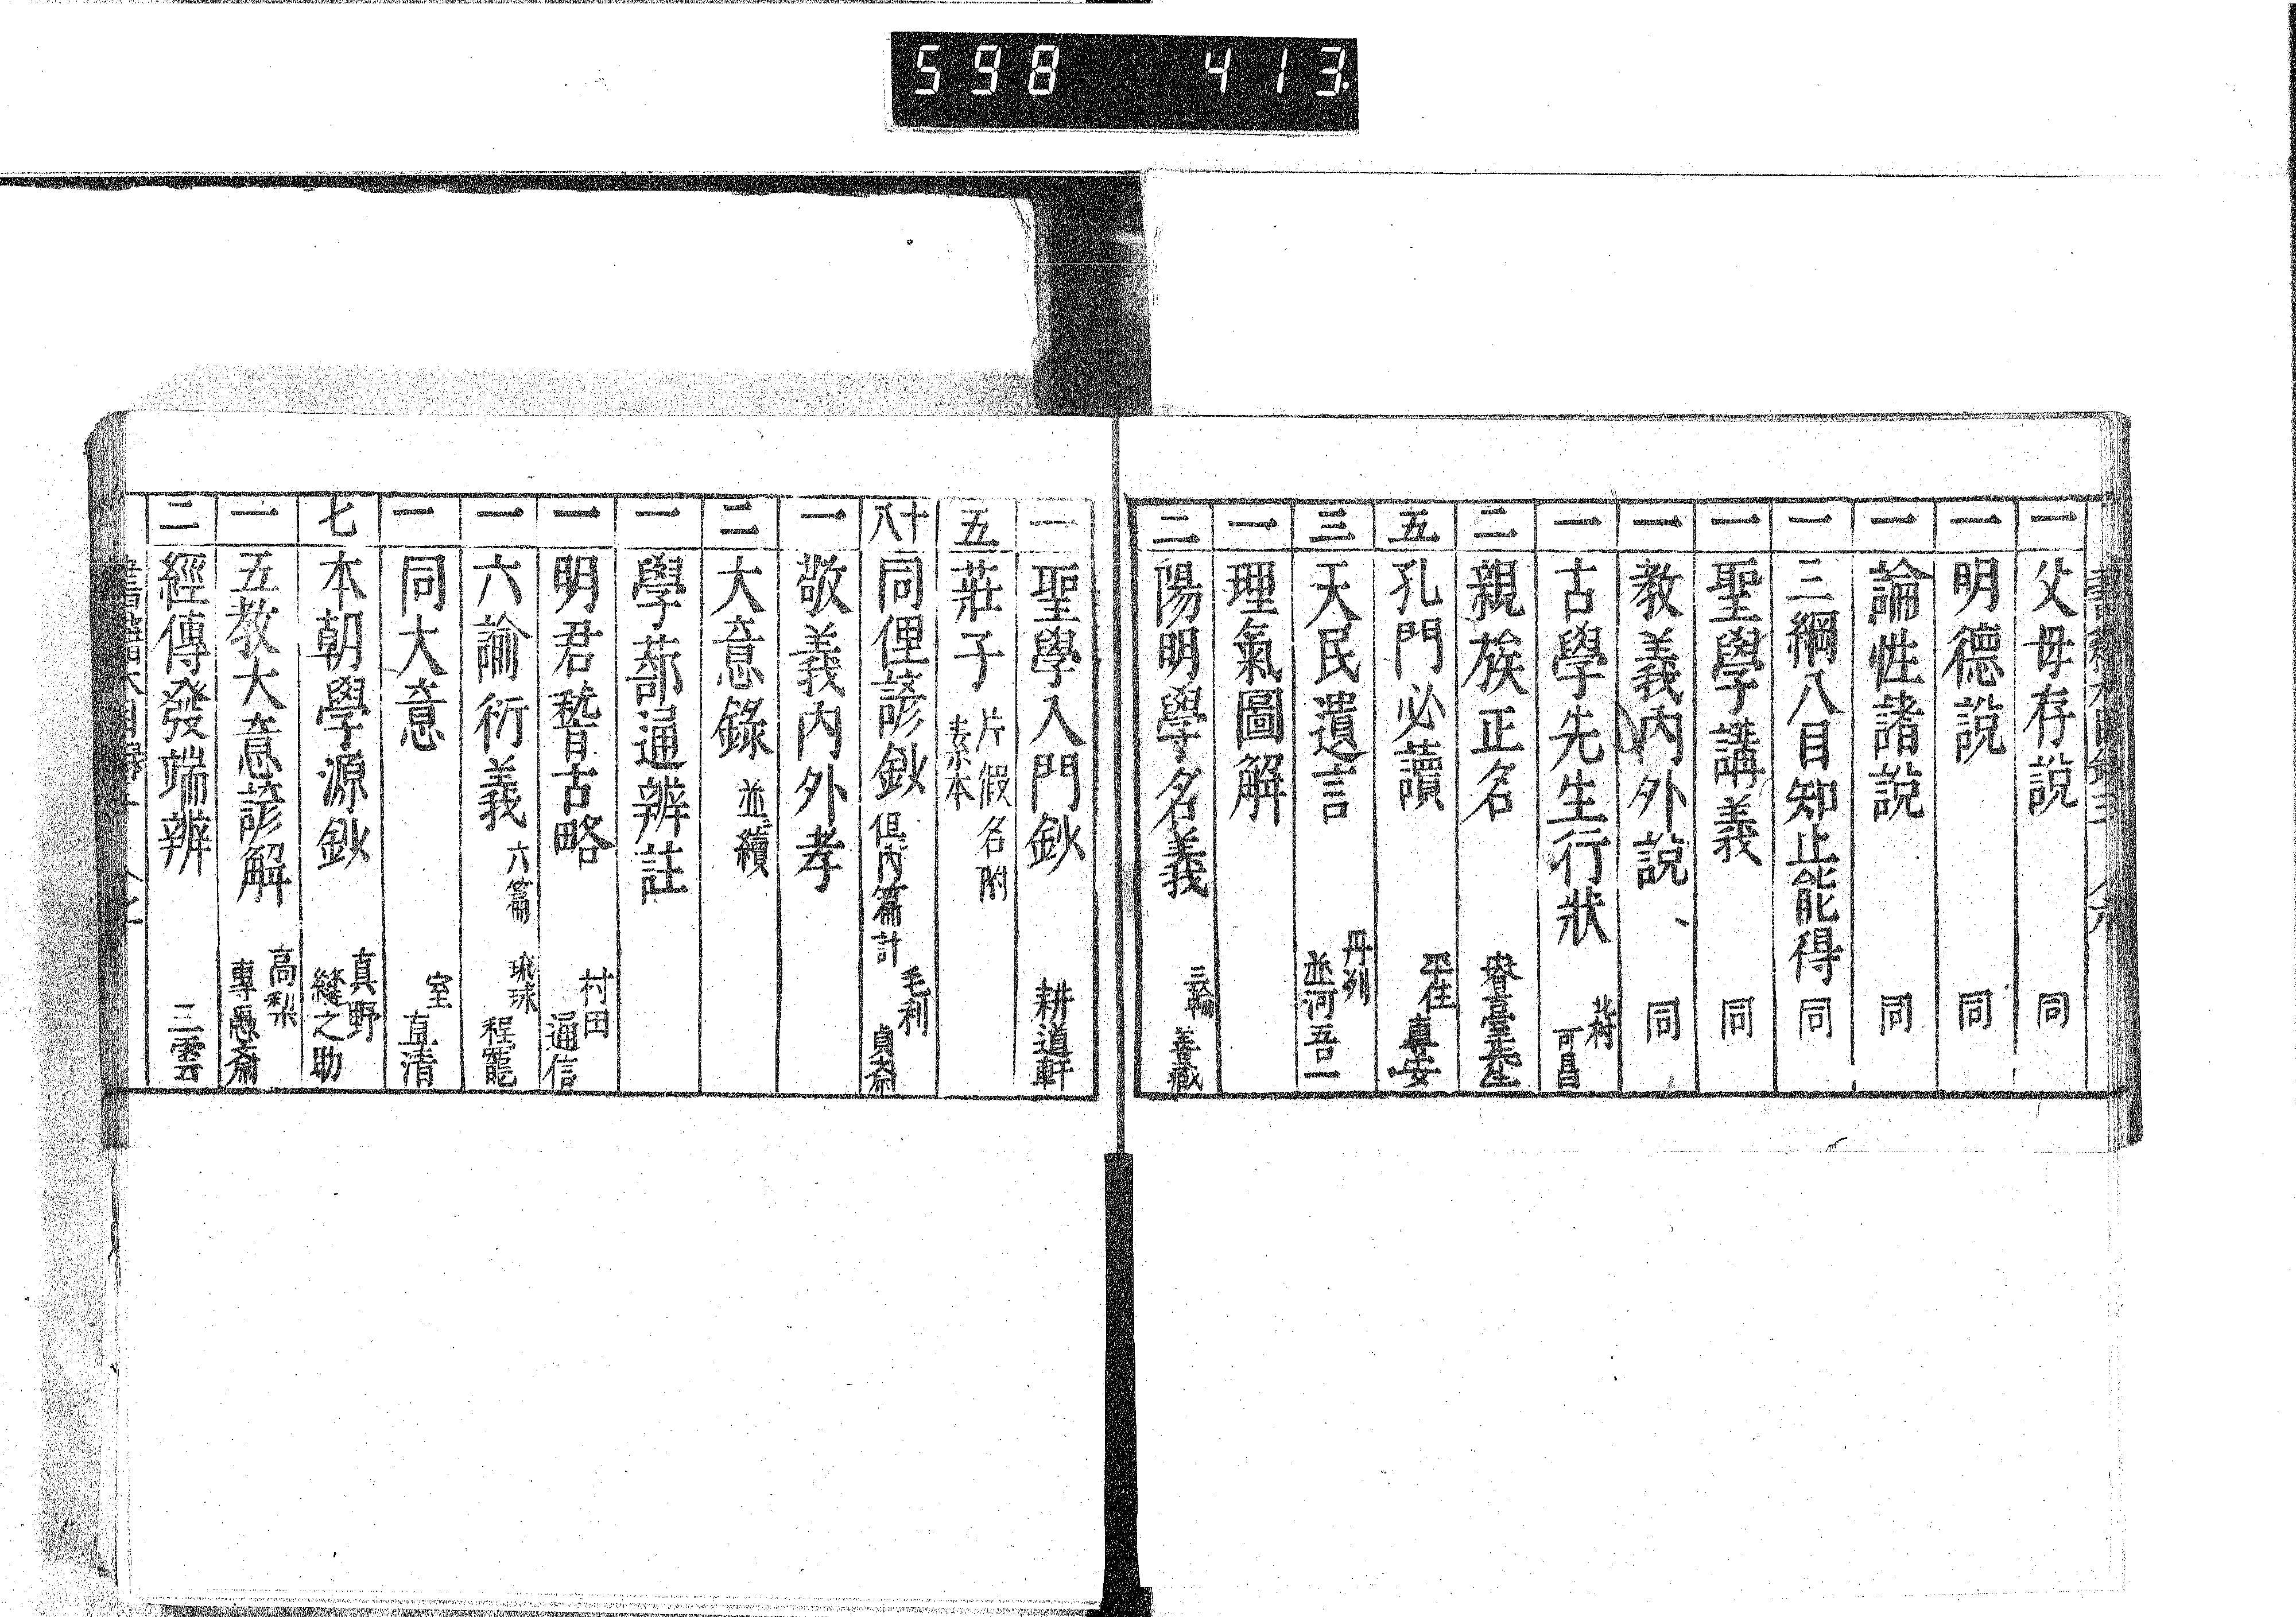 598 413
一 父母存說 同
一 明德說 同
一 論性諸說 同
一 三綱八目知止能得 同
一 聖學講義 同
一 教義內外說、 同
一 古學先生行狀 北村可昌
二 親族正名 春臺先生
五 孔門必讀 平住專安
三 天民遺言 丹列並河吾一
一 理氣圖解
二 陽明學名義 三輪善藏
一 聖學入門鈔 耕道軒
五 莊子 片假名附 素本
十八 同俚諺鈔 俱內篇計 毛利貞齋
一 敬義內外孝
二 大意錄 並續
一 學蔀通辨註
一 明君㽞古略 村田通信
一 六諭衍義 六篇 琉球程寵
一 同大意 室直清
七 本朝學源鈔 真野縫之助
一 五教大意諺解 高梨專愚齋
二 經傳發端辨 三雲